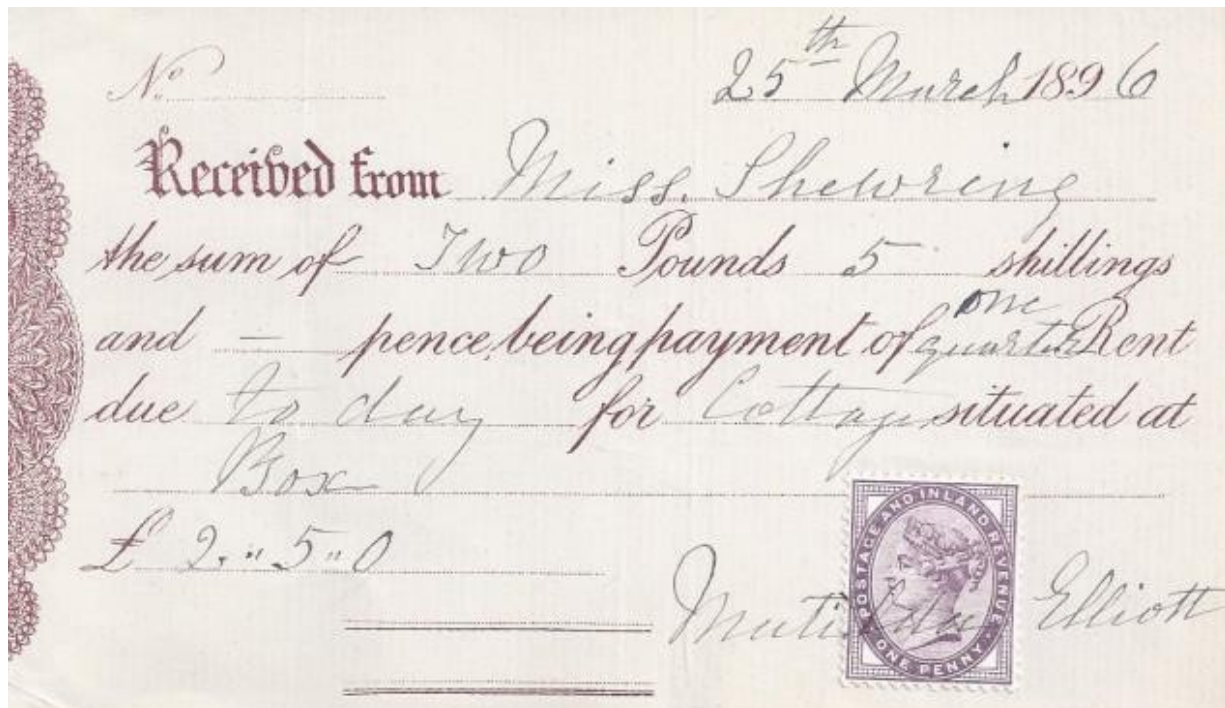 No. 25th March 1896
Received from Miss. Shewring
the sum of Two Pounds 5 shillings
and — pence, being payment of one quarter Rent
due to day for Cottage situated at
Box
£ 2 . " 5 " 0
Matilda Elliott
POSTAGE AND INLAND REVENUE
ONE PENNY